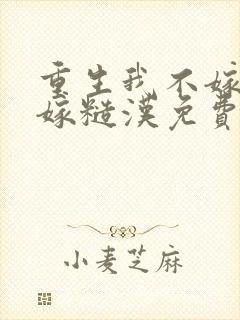 重生我不嫁
嫁糙漢免費
小麦芝麻